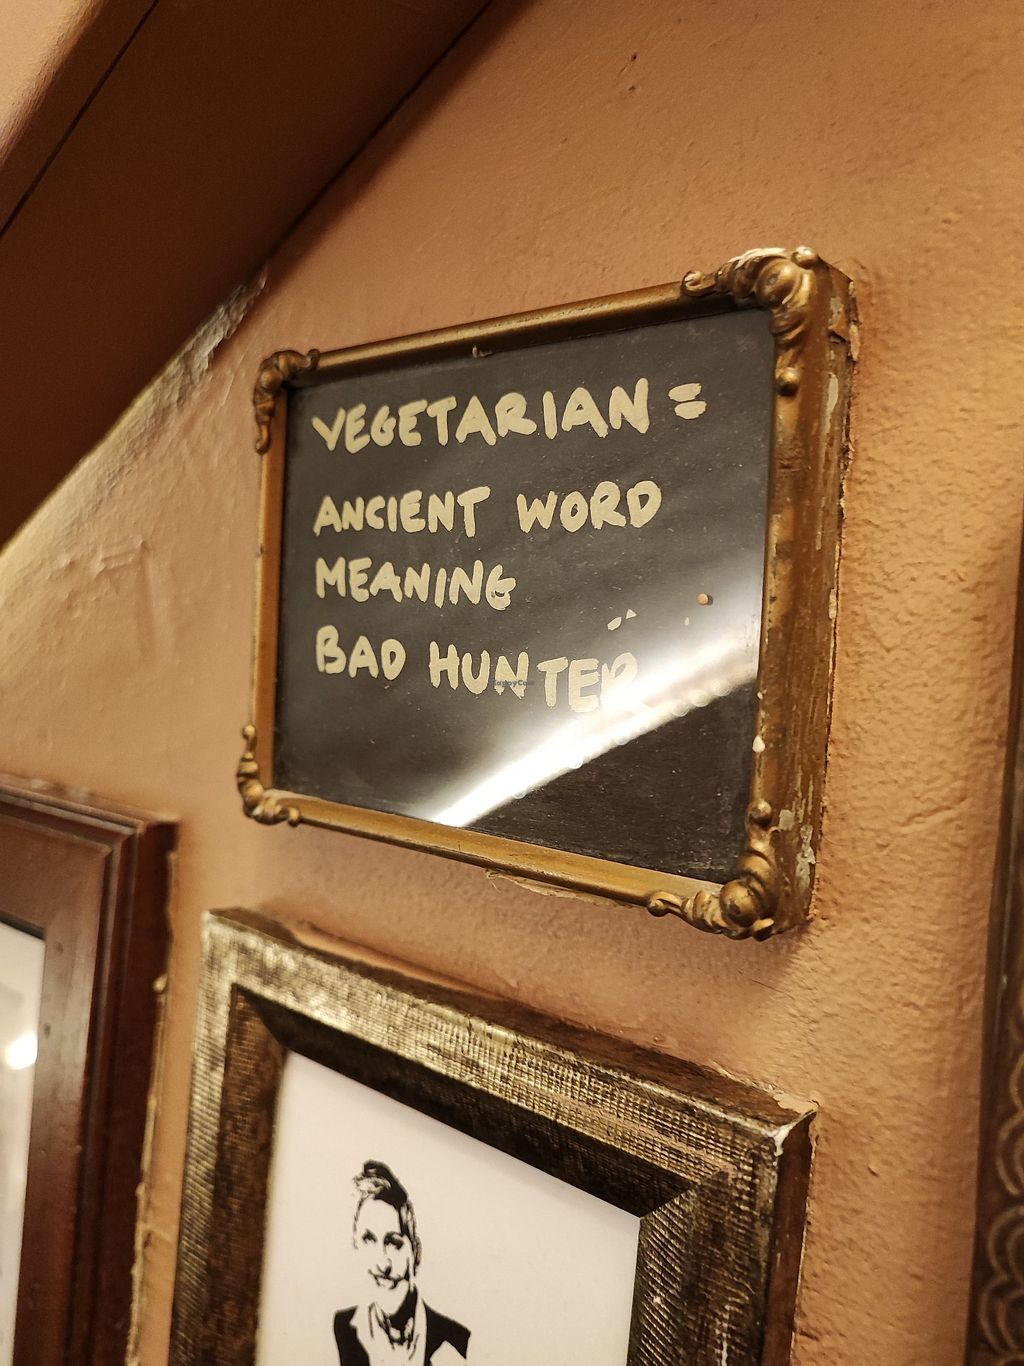 VEGETARIAN =
ANCIENT WORD
MEANING
BAD HUNTER
HappyCow